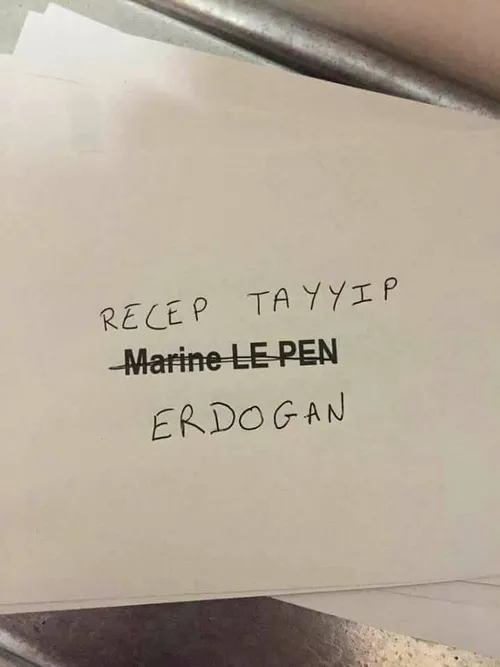 RECEP TAYYIP
Marine LE PEN
ERDOGAN